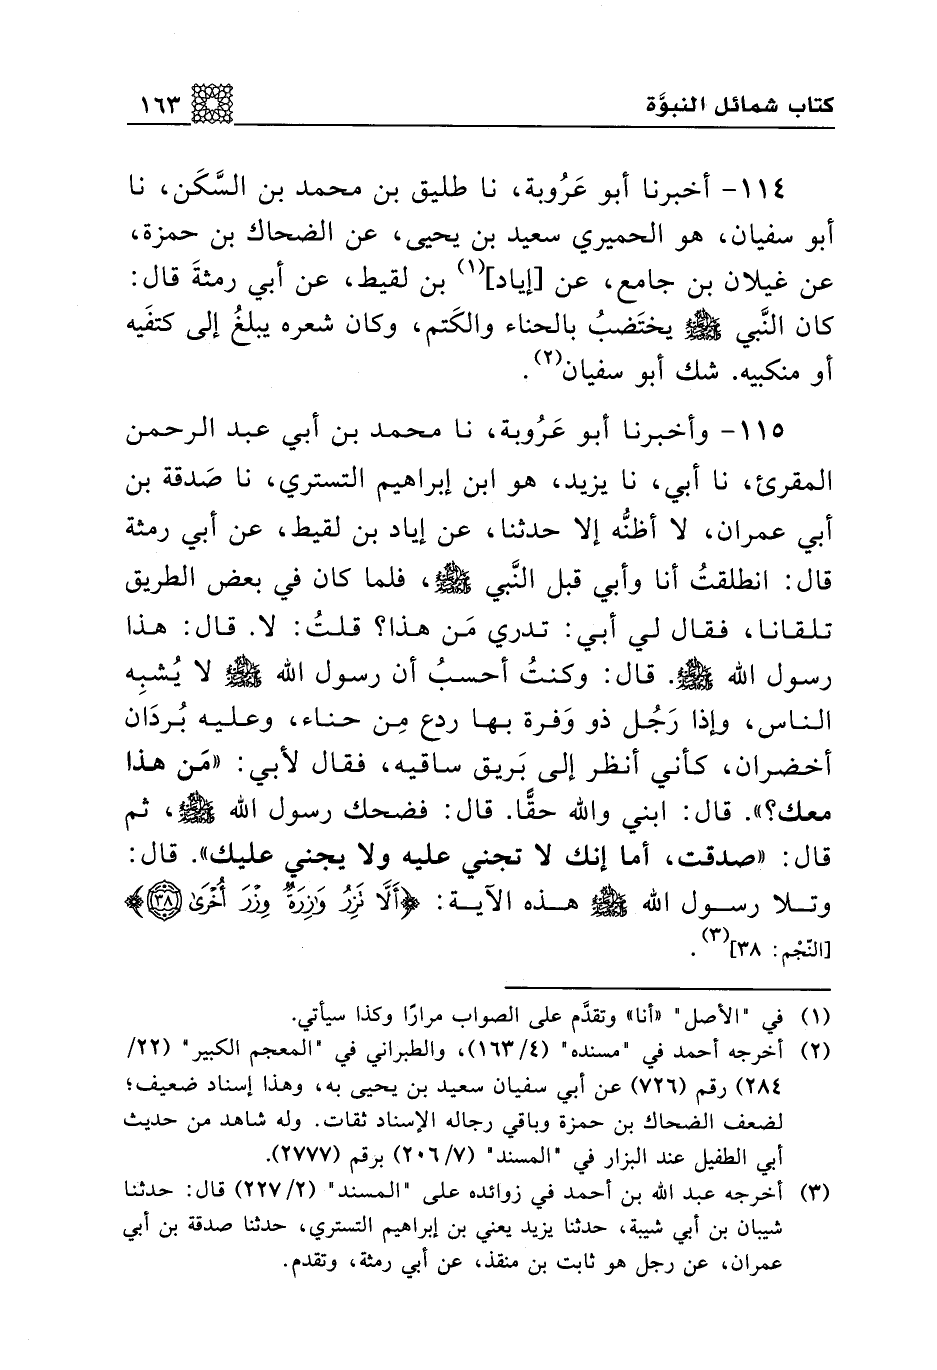 كتاب شمائل النبوَّة ١٦٣
١١٤- أخبرنا أبو عَرُوبة، نا طليق بن محمد بن السَّكَن، نا
أبو سفيان، هو الحميري سعيد بن يحيى، عن الضحاك بن حمزة،
عن غيلان بن جامع، عن [إياد](١) بن لقيط، عن أبي رمثةَ قال:
كان النَّبي ﷺ يختَضبُ بالحناء والكَتم، وكان شعره يبلغُ إلى كتفَيه
أو منكبيه. شك أبو سفيان(٢).
١١٥- وأخبرنا أبو عَرُوبة، نا محمد بن أبي عبد الرحمن
المقرئ، نا أبي، نا يزيد، هو ابن إبراهيم التستري، نا صَدقة بن
أبي عمران، لا أظنُّه إلا حدثنا، عن إياد بن لقيط، عن أبي رمثة
قال: انطلقتُ أنا وأبي قبل النَّبي ﷺ، فلما كان في بعض الطريق
تلقانا، فقال لي أبي: تدري مَن هذا؟ قلتُ: لا. قال: هذا
رسول الله ﷺ. قال: وكنتُ أحسبُ أن رسول الله ﷺ لا يُشبِه
الناس، وإذا رَجُل ذو وَفرة بها ردع مِن حناء، وعليه بُردَان
أخضران، كأني أنظر إلى بَريق ساقيه، فقال لأبي: «مَن هذا
معك؟». قال: ابني والله حقًّا. قال: فضحك رسول الله ﷺ، ثم
قال: «صدقت، أما إنك لا تجني عليه ولا يجني عليك». قال:
وتلا رسول الله ﷺ هذه الآية: ﴿أَلَّا نَزِرُ وَازِرَةٌ وِزْرَ أُخْرَىٰ ٣٨﴾
[النّجْم: ٣٨](٣).
(١) في "الأصل" «أنا» وتقدَّم على الصواب مرارًا وكذا سيأتي.
(٢) أخرجه أحمد في "مسنده" (٤/ ١٦٣)، والطبراني في "المعجم الكبير" (٢٢/
٢٨٤) رقم (٧٢٦) عن أبي سفيان سعيد بن يحيى به، وهذا إسناد ضعيف؛
لضعف الضحاك بن حمزة وباقي رجاله الإسناد ثقات. وله شاهد من حديث
أبي الطفيل عند البزار في "المسند" (٧/ ٢٠٦) برقم (٢٧٧٧).
(٣) أخرجه عبد الله بن أحمد في زوائده على "المسند" (٢/ ٢٢٧) قال: حدثنا
شيبان بن أبي شيبة، حدثنا يزيد يعني بن إبراهيم التستري، حدثنا صدقة بن أبي
عمران، عن رجل هو ثابت بن منقذ، عن أبي رمثة، وتقدم.